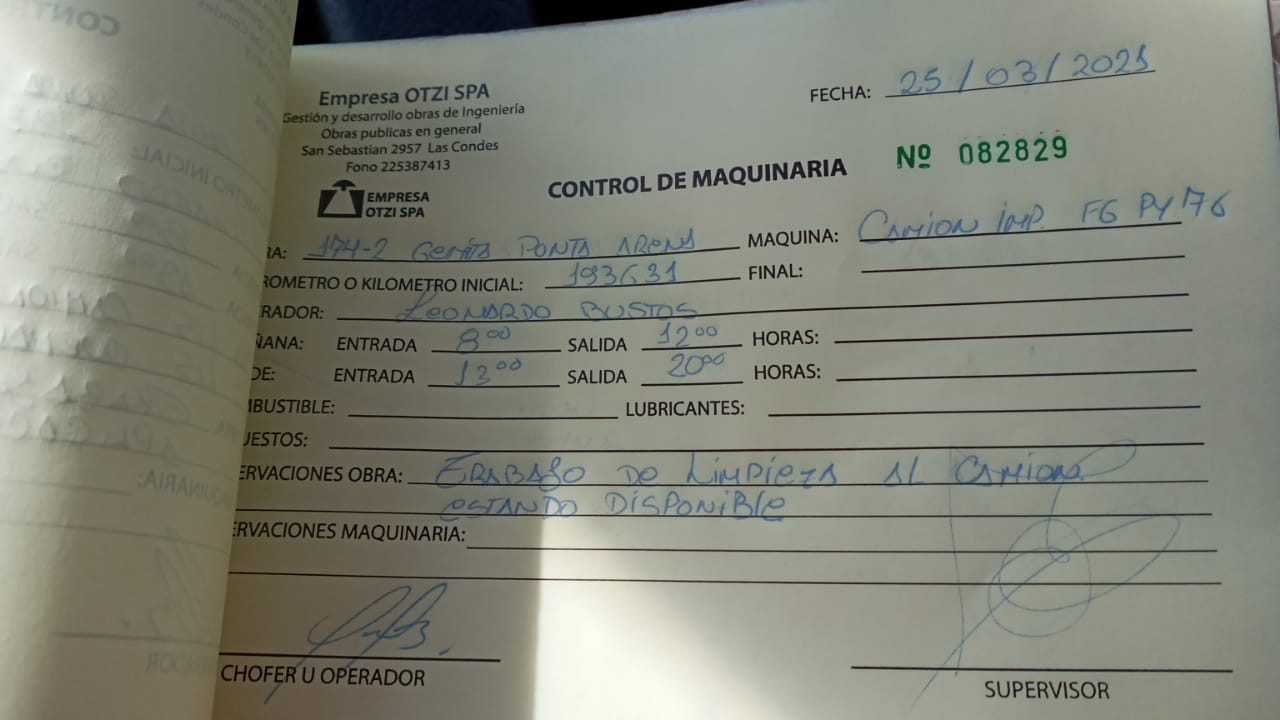 Empresa OTZI SPA
Gestión y desarrollo obras de Ingeniería
Obras publicas en general
San Sebastian 2957 Las Condes
Fono 225387413
EMPRESA
OTZI SPA
FECHA: 25/03/2025
Nº 082829
CONTROL DE MAQUINARIA
RA: 174-2 PUNTA ARENS MAQUINA: CAMION IMP. FG PY 176
ROMETRO O KILOMETRO INICIAL: 193631 FINAL:
RADOR: LEONARDO BUSTOS
ÑANA: ENTRADA 8⁰⁰ SALIDA 12⁰⁰ HORAS:
DE: ENTRADA 13⁰⁰ SALIDA 20⁰⁰ HORAS:
BUSTIBLE: LUBRICANTES:
UESTOS:
ERVACIONES OBRA: TRABAJO DE LIMPIEZA AL CAMION
ESTANDO DISPONIBLE
ERVACIONES MAQUINARIA:
CHOFER U OPERADOR
SUPERVISOR